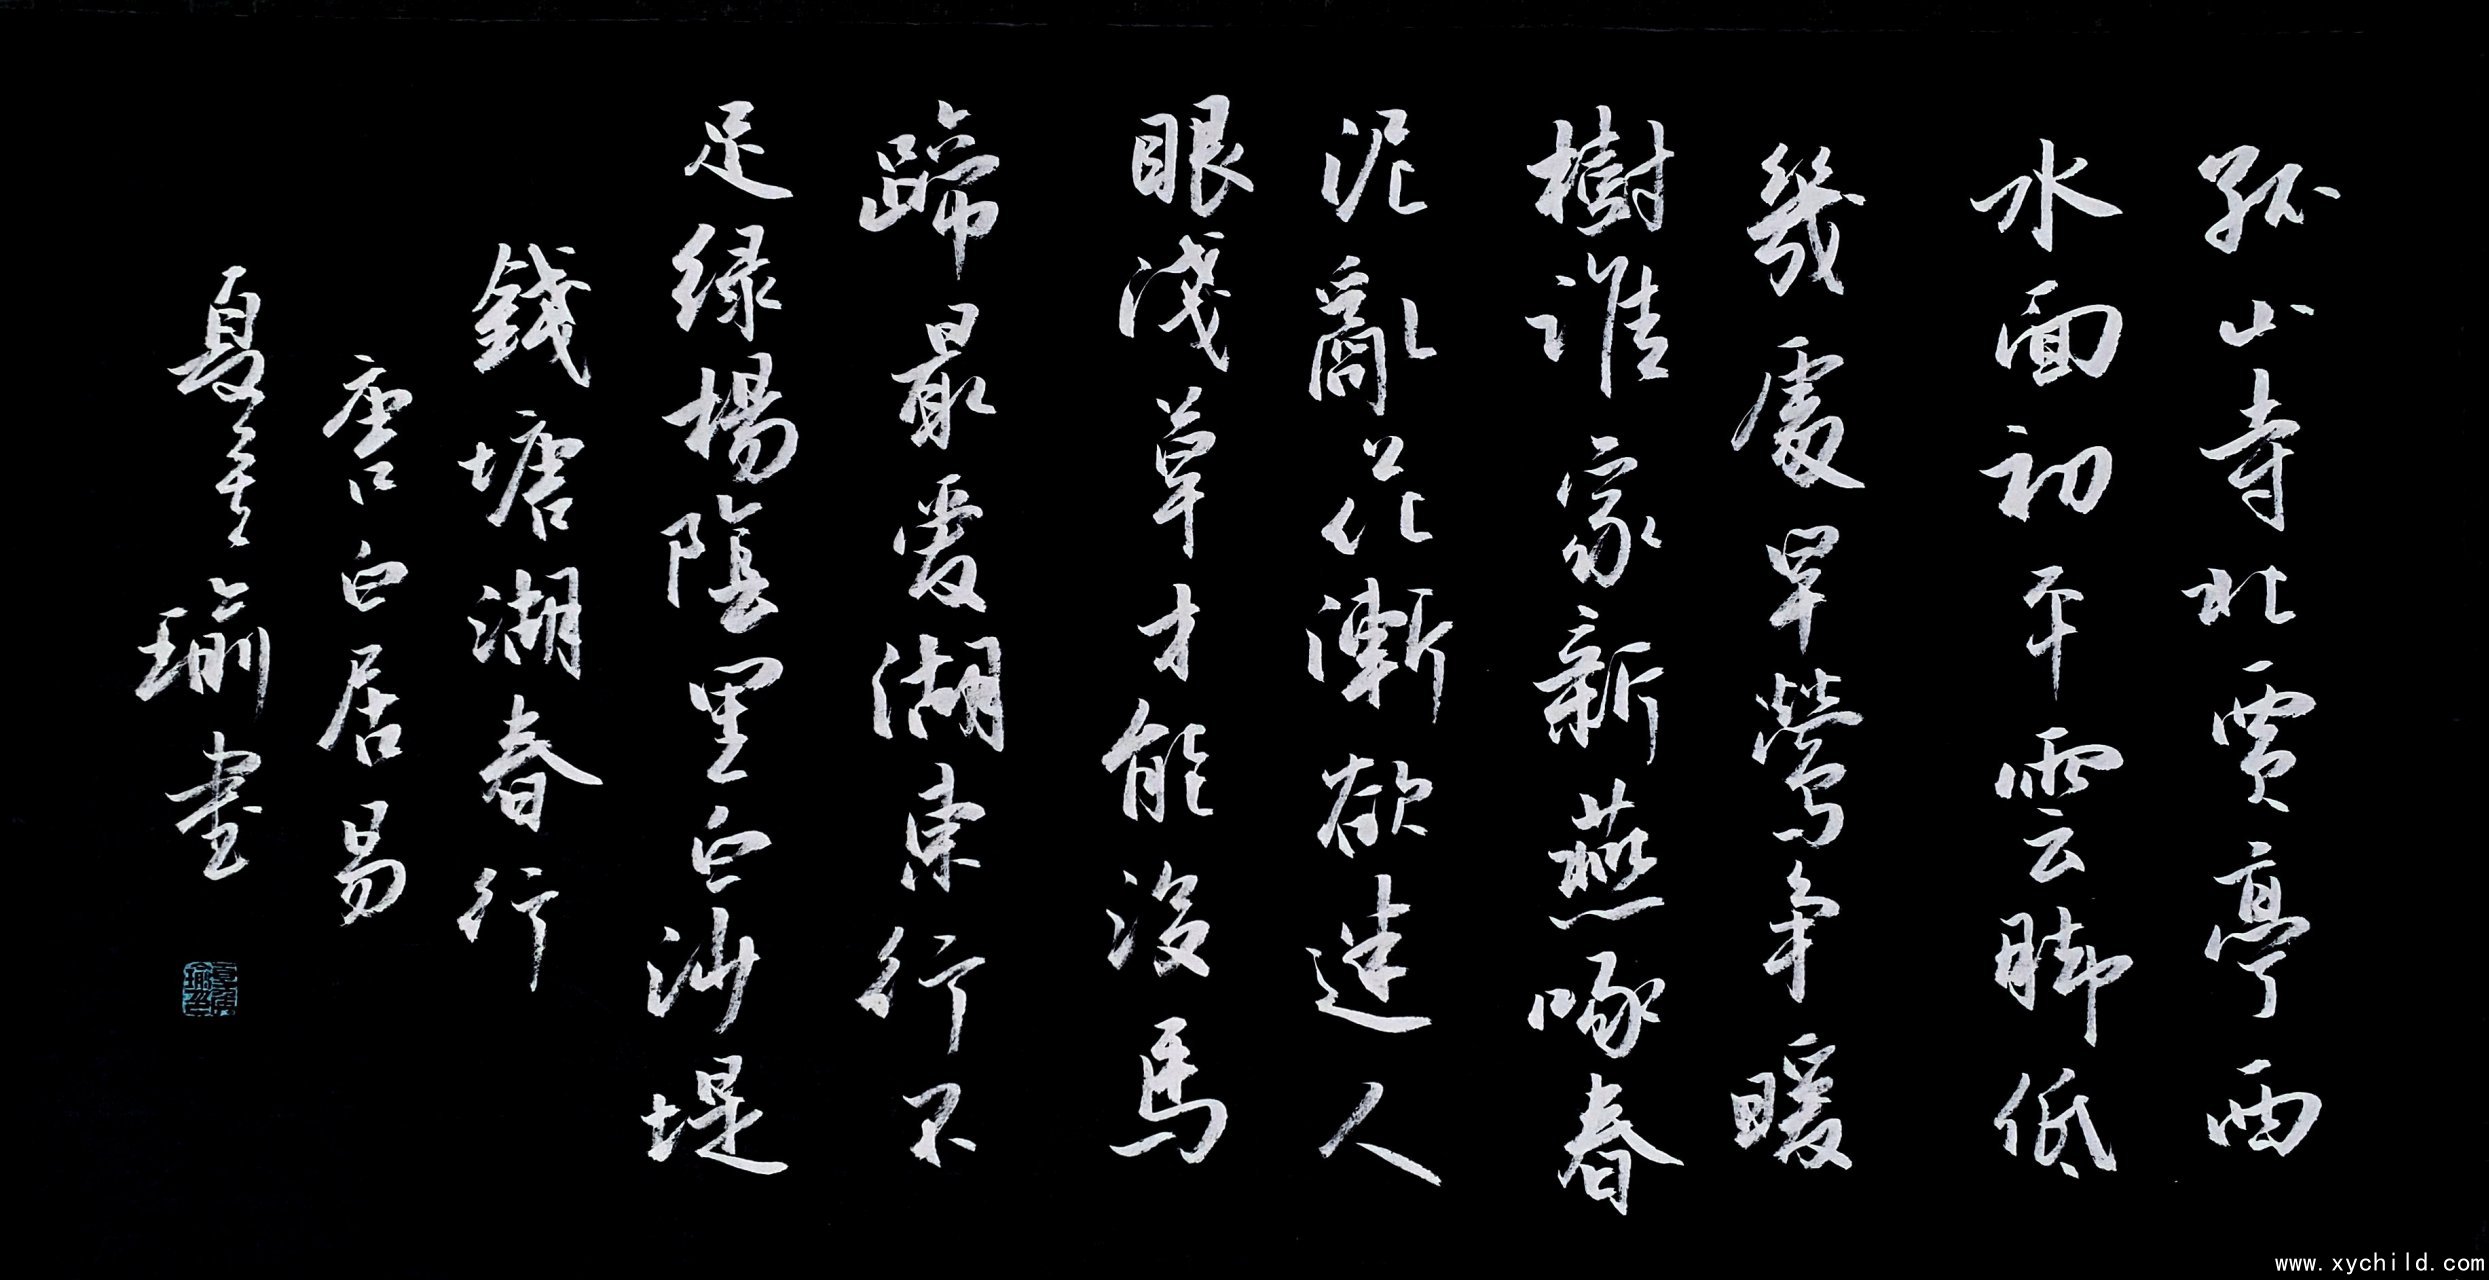 孤山寺北賈亭西
水面初平雲脚低
幾處早鶯争暖
樹谁家新燕啄春
泥亂花漸欲迷人
眼淺草才能没馬
蹄最愛湖東行不
足绿楊陰里白沙堤
錢塘湖春行
唐白居易
夏重瑜書
www.xychild.com